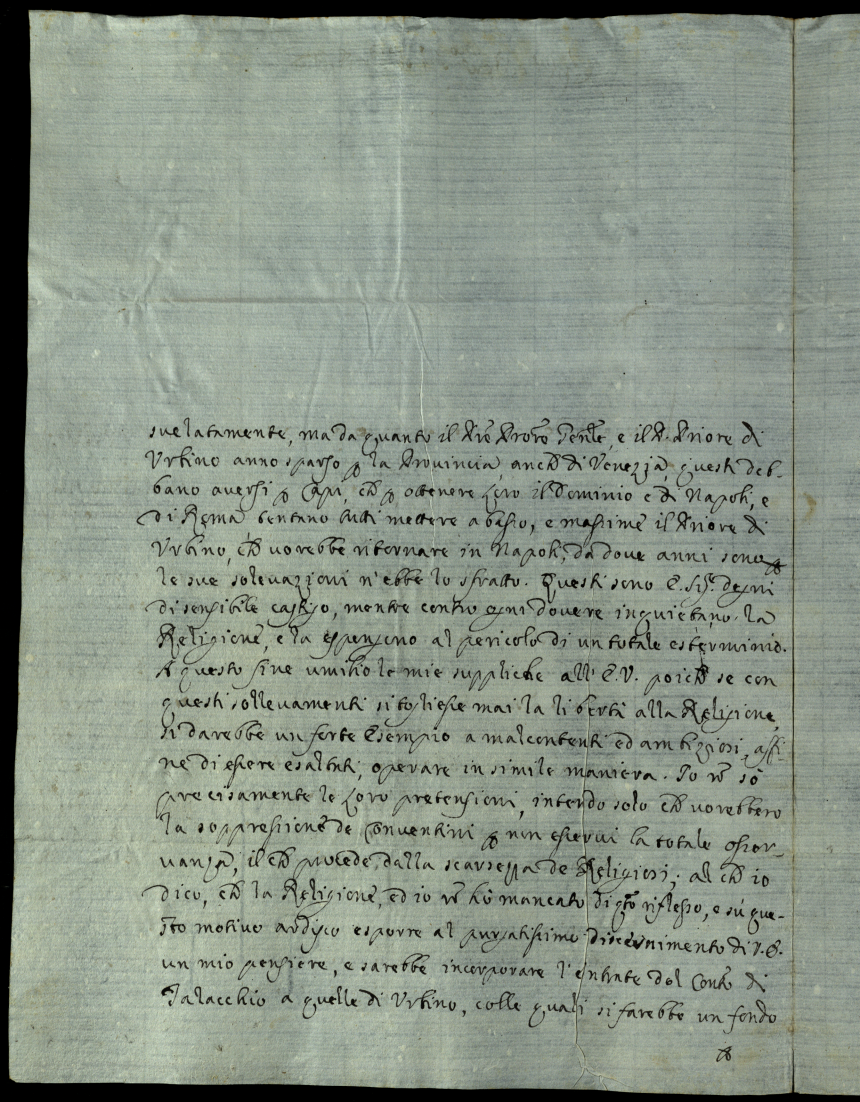 suelatamente, ma da quanto il e il P. Priore di
Urbino anno sparso p la Provincia, anch di Venezia, questi deb-
bano aversi p Capi, ch p ottenere Loro il Dominio e di Napoli, e
di Roma tentano tutti mettere a basso, e massime il Priore di
Urbino, ch vorebbe ritornare in Napoli, da dove anni sono p
le sue solevazioni n'ebbe lo sfratto. Questi sono E. Sigr. degni
di sensibile castigo, mentre contro ogni dovere inquietano la
Religione, e la espongono al pericolo di un totale esterminio.
A questo fine umilio le mie suppliche all' E.V. poich se con
questi sollevamenti si togliesse mai la libertà alla Religione,
si darebbe un forte Esempio a malcontenti ed ambiziosi, affi-
ne di essere esaltati, operare in simile maniera. Io n so
precisamente le Loro pretensioni, intendo solo ch vorebbero
la soppressione de Conventini p non esservi la totale osser-
vanza, il ch procede dalla scarsezza de Religiosi; al ch io
dico, ch la Religione, ed io n hò mancato di qto riflesso, e sù que-
sto motivo ardisco esporre al purgatissimo discernimento di V.E.
un mio pensiere, e sarebbe incorporare l'entrate del Conto di
Talacchio a quelle di Urbino, colle quali si farebbe un fondo
p